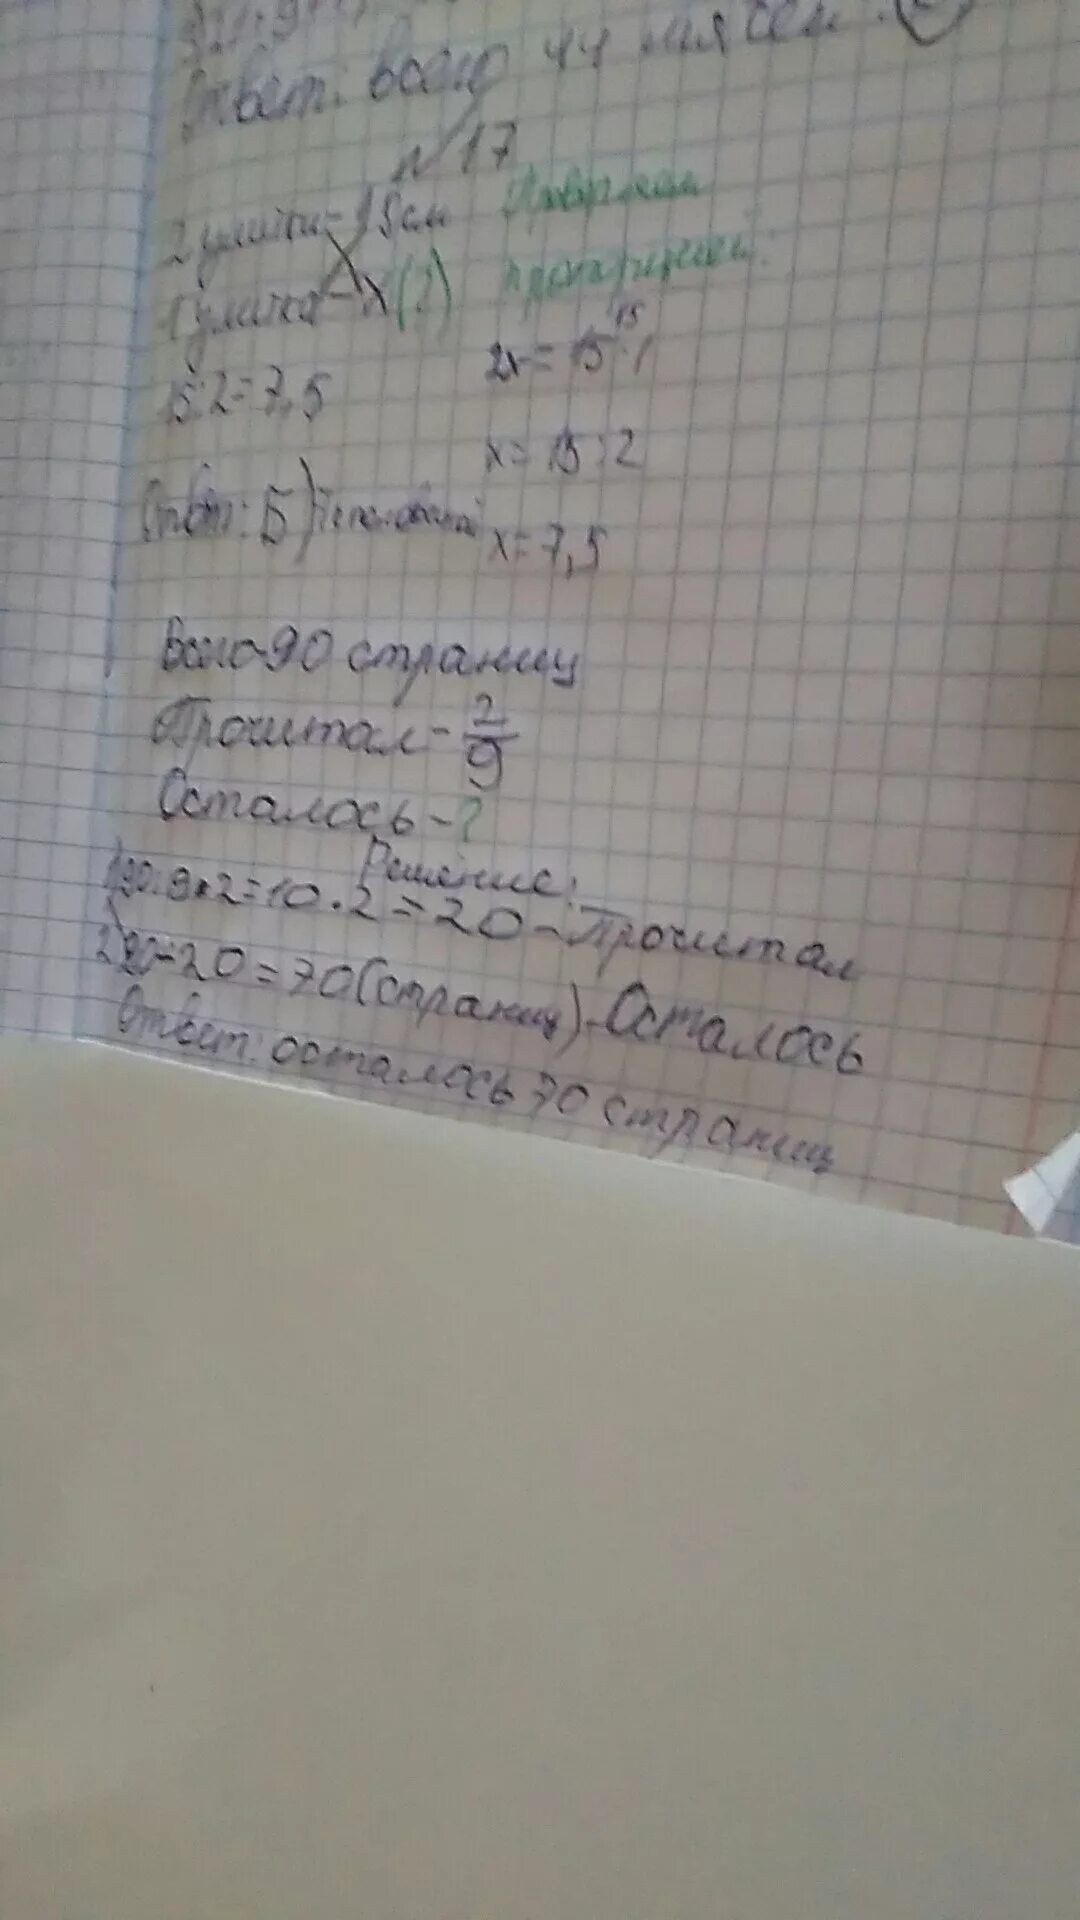 Ответ: всего 44
№ 17
2 улитки - 15 см
1 улитка - x (?)
пропорцией:
2x = 15 · 1
15
15:2=7,5
x = 15 : 2
Ответ: Б)
x = 7,5
Всего - 90 страниц
Прочитал - 2/9
Осталось - ?
Решение:
1) 90:9·2=10·2=20 - Прочитал
2) 90-20=70(страниц) - Осталось
Ответ: осталось 70 страниц